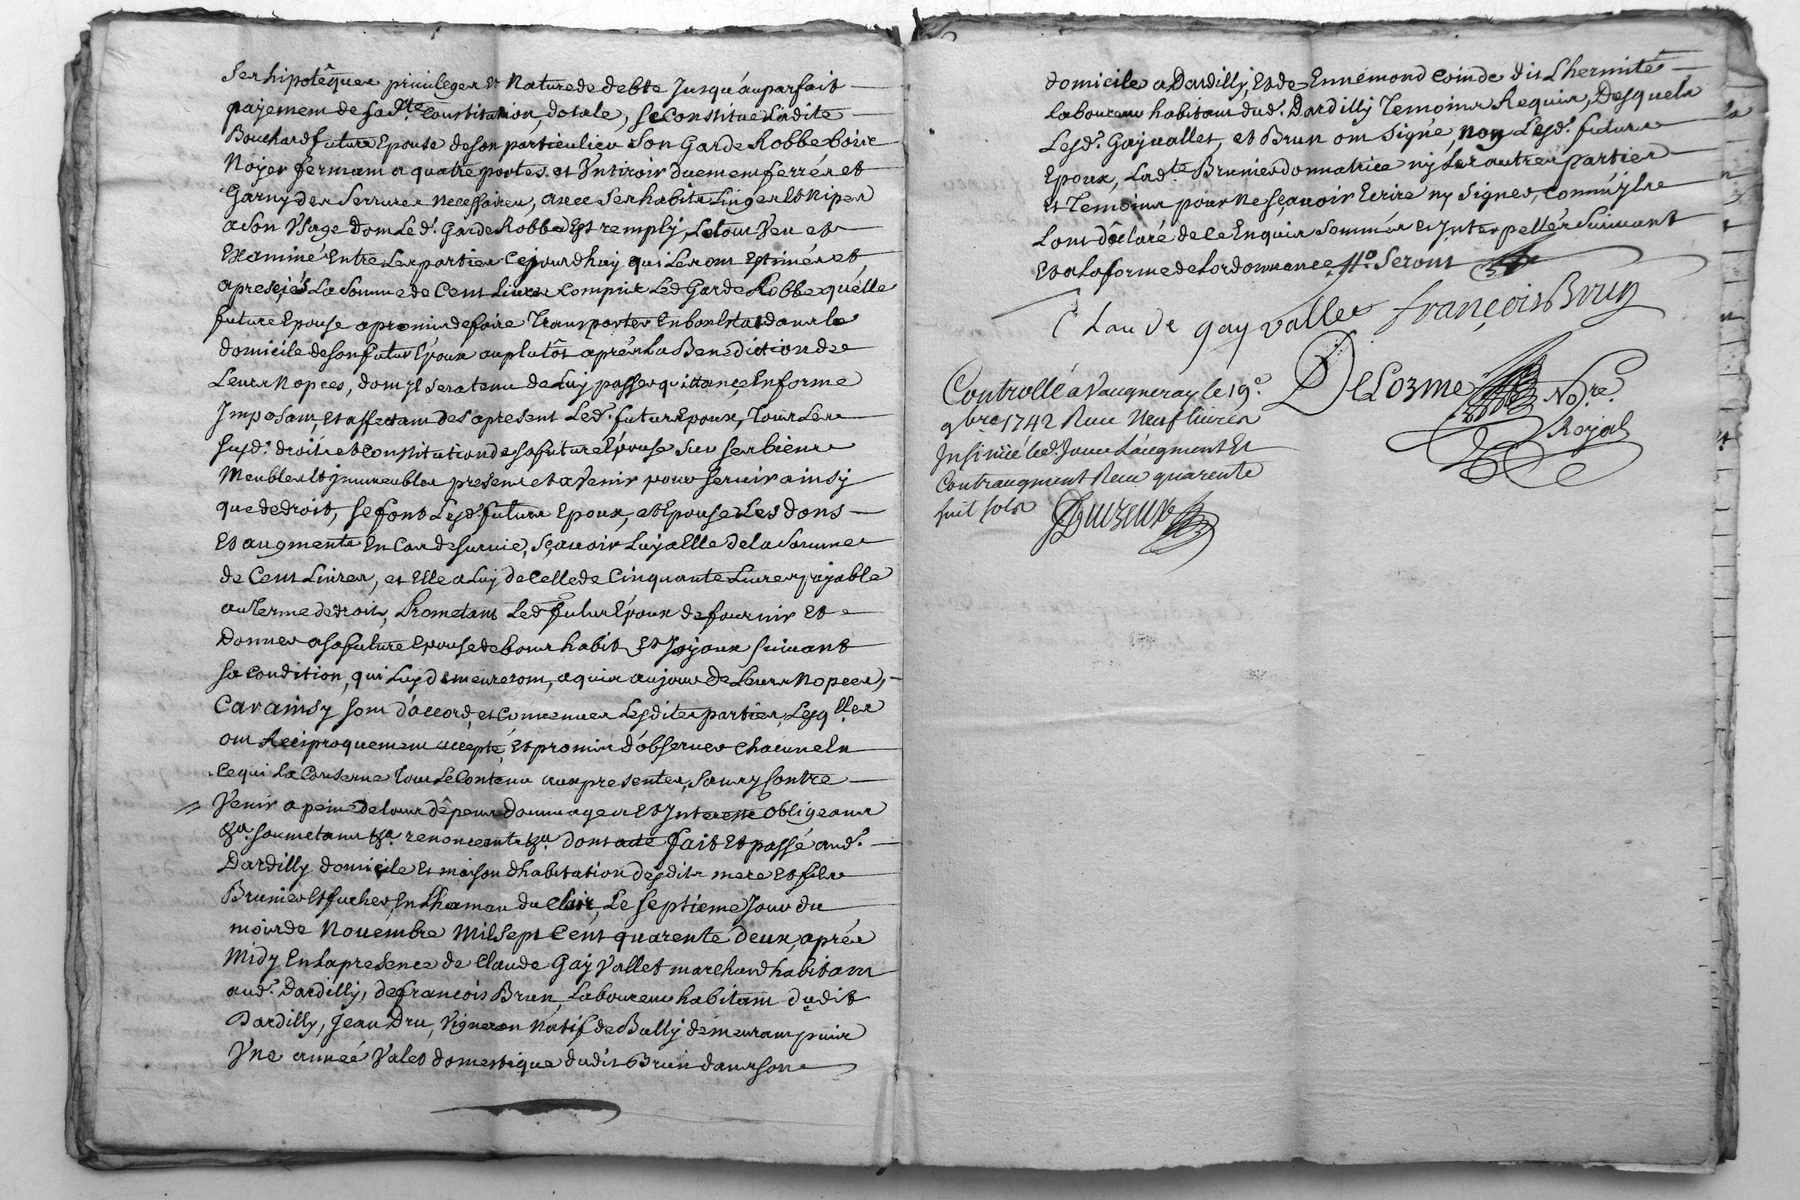 Ses hipotêques privileges Et Nature de debte Jusqu'au parfait
payement de sa dte Constitution dotale, se Constitue Ladite
Bouchard future Epouse de son particulier Son Garde Robbe boix
Noyer fermant a quatre portes et Un tiroir duement ferré et
Garny des Serrures Necessaires, avec Ses habits Linges Et Nipes
a Son Usage dont Led. Garde Robbe Est remply, Le tout Veu et
Examiné Entre Les parties Cejourdhuy qui Les ont Estimés et
apreciés La Somme de Cent Livres Compris Led Garde Robbe quelle
future Epouse a promis de faire Transporter En bon Etat dans le
domicile de son futur Epoux au plutôt après La Benediction de
Leurs Nopces, dont Il Sera tenu de Luy passer quittance En forme
Imposant, Et affectant des apresent Led. futur Epoux, Tous Les
susd. droits et Constitution de sa future Epouse Sur Ses biens
Meubles Et Immeubles presents et a Venir pour Servir ainsy
que de droit, se font Lesd. futurs Epoux, et Epouse Les dons
Et augments En Cas de Survie, Sçavoir Luy a Elle de la Somme
de Cent Livres, et Elle a Luy de Celle de Cinquante Livres payable
au Terme de droit, Prometant Led. futur Epoux de fournir Et
Donner a Sa future Epouse de bons habits Et Joyaux suivant
Sa Condition, qui Luy demeureront, aquis au jour de Leurs Nopces,
Car ainsy sont d'accord, et Convenues Lesdites parties, Lesqlles
ont Reciproquement accepté, Et promis d'observer Chacune En
Ce qui La Conserne Tout Le Contenu aux presentes, Sans y Contre
Venir a peine de tous dêpens Dommages Et Interests Obligeans
&a. Soumetans &a. renoncent &a. Dont acte fait Et passé aud.
Dardilly domicile Et maison d'habitation desdits mere Et fils
Brunier Et fucher, En L'hameau du Clair, Le Septieme Jour du
mois de Novembre Mil Sept Cent quarente deux, après
Midy En La presence de Claude Gay Vallet marchand habitant
aud. Dardilly, de francois Brun, Laboureur habitant dudit
Dardilly, Jean Dru, Vigneron Natif de Bully demeurant puis
Une année Valet domestique dudit Brun dans son
domicile a Dardilly, Et de Ennemond Coinde dit Lhermite
laboureur habitant dud. Dardilly Temoins Requis, Desquels
Lesd. Gayvallet, et Brun ont Signé, non Lesd. futurs
Epoux, Lad.te Brunier donnatrice ny Les autres parties
Et Temoins pour Ne Sçavoir Ecrire ny Signer, Comme Ils
L'ont déclaré de Ce Enquis Sommés et Interpellés Suivant
Et a La forme de Lordonnance
Claude gay vallet françois Brun
DeLorme Nore.
Royal
Controllé a Vaugneray le 19e.
9bre 1742 Recu Neuf livres
Insinué led. Jour L'augment Et
Contraugment Recu quarente
huit sols